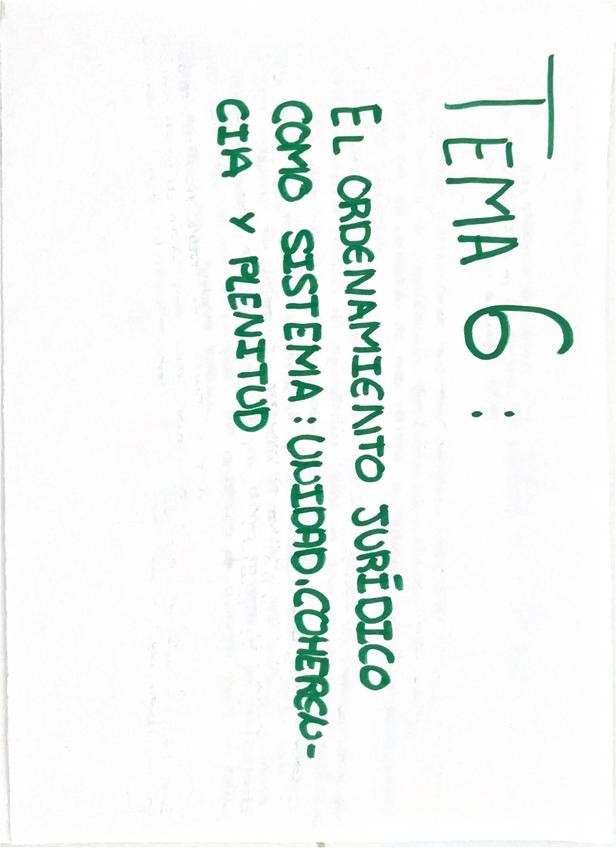 TEMA 6:
EL ORDENAMIENTO JURÍDICO
COMO SISTEMA: UNIDAD, COHEREN-
CIA Y PLENITUD